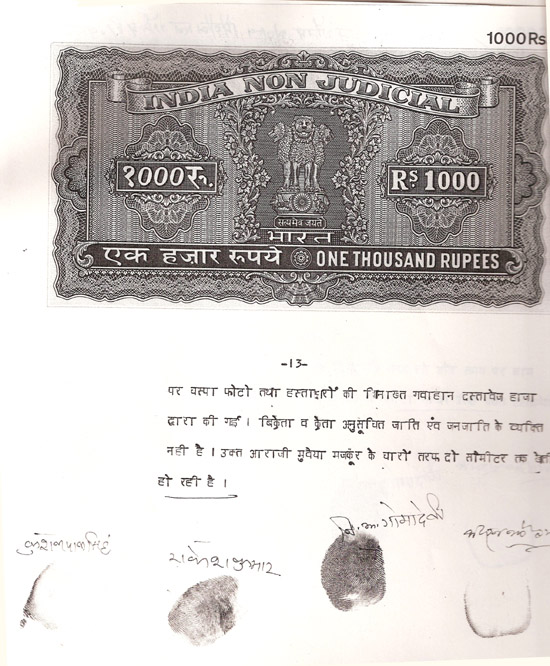 1000Rs
INDIA NON JUDICIAL
१000रु.
Rs 1000
सत्यमेव जयते
भारत
एक हजार रुपये ONE THOUSAND RUPEES
-13-
पर चस्पा फोटो तथा हस्ताक्षरों की शिनाख्त गवाहान दस्तावेज हाजा
द्वारा की गई । विक्रेता व क्रेता अनुसूचित जाति एंव जनजाति के व्यक्ति
नही है । उक्त आराजी मुवैया मजकूर के चारों तरफ दो सौमीटर तक
हो रही है ।
राकेश कुमार
नि.अ.गोमादेवी